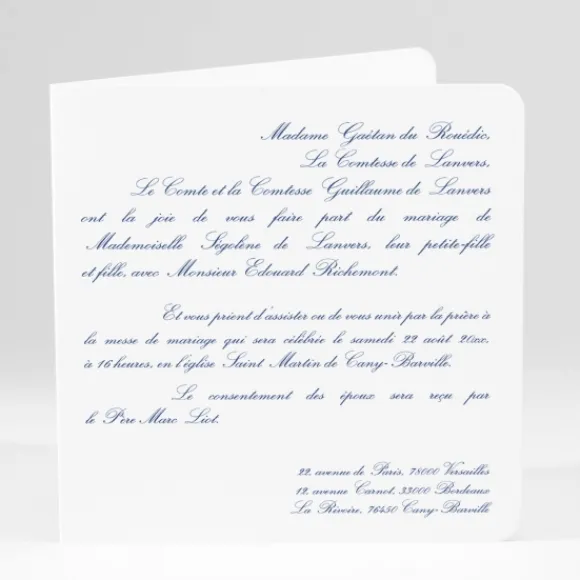 Madame Gaëtan du Rouëdic,
La Comtesse de Lanvers,
Le Comte et la Comtesse Guillaume de Lanvers
ont la joie de vous faire part du mariage de
Mademoiselle Ségolène de Lanvers, leur petite-fille
et fille, avec Monsieur Edouard Richemont.
Et vous prient d'assister ou de vous unir par la prière à
la messe de mariage qui sera célébrée le samedi 22 août 20xx,
à 16 heures, en l'église Saint Martin de Cany-Barville.
Le consentement des époux sera reçu par
le Père Marc Liot.
22, avenue de Paris, 78000 Versailles
12, avenue Carnot, 33000 Bordeaux
La Rivoire, 76450 Cany-Barville